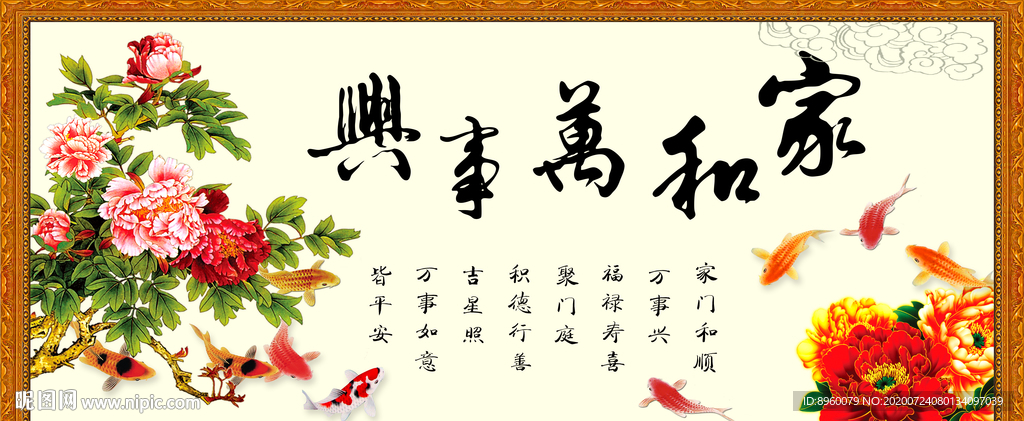 家和萬事興
家门和顺
万事兴
福禄寿喜
聚门庭
积德行善
吉星照
万事如意
皆平安
昵图网 www.nipic.com
ID:8960079 NO:20200724080134097039